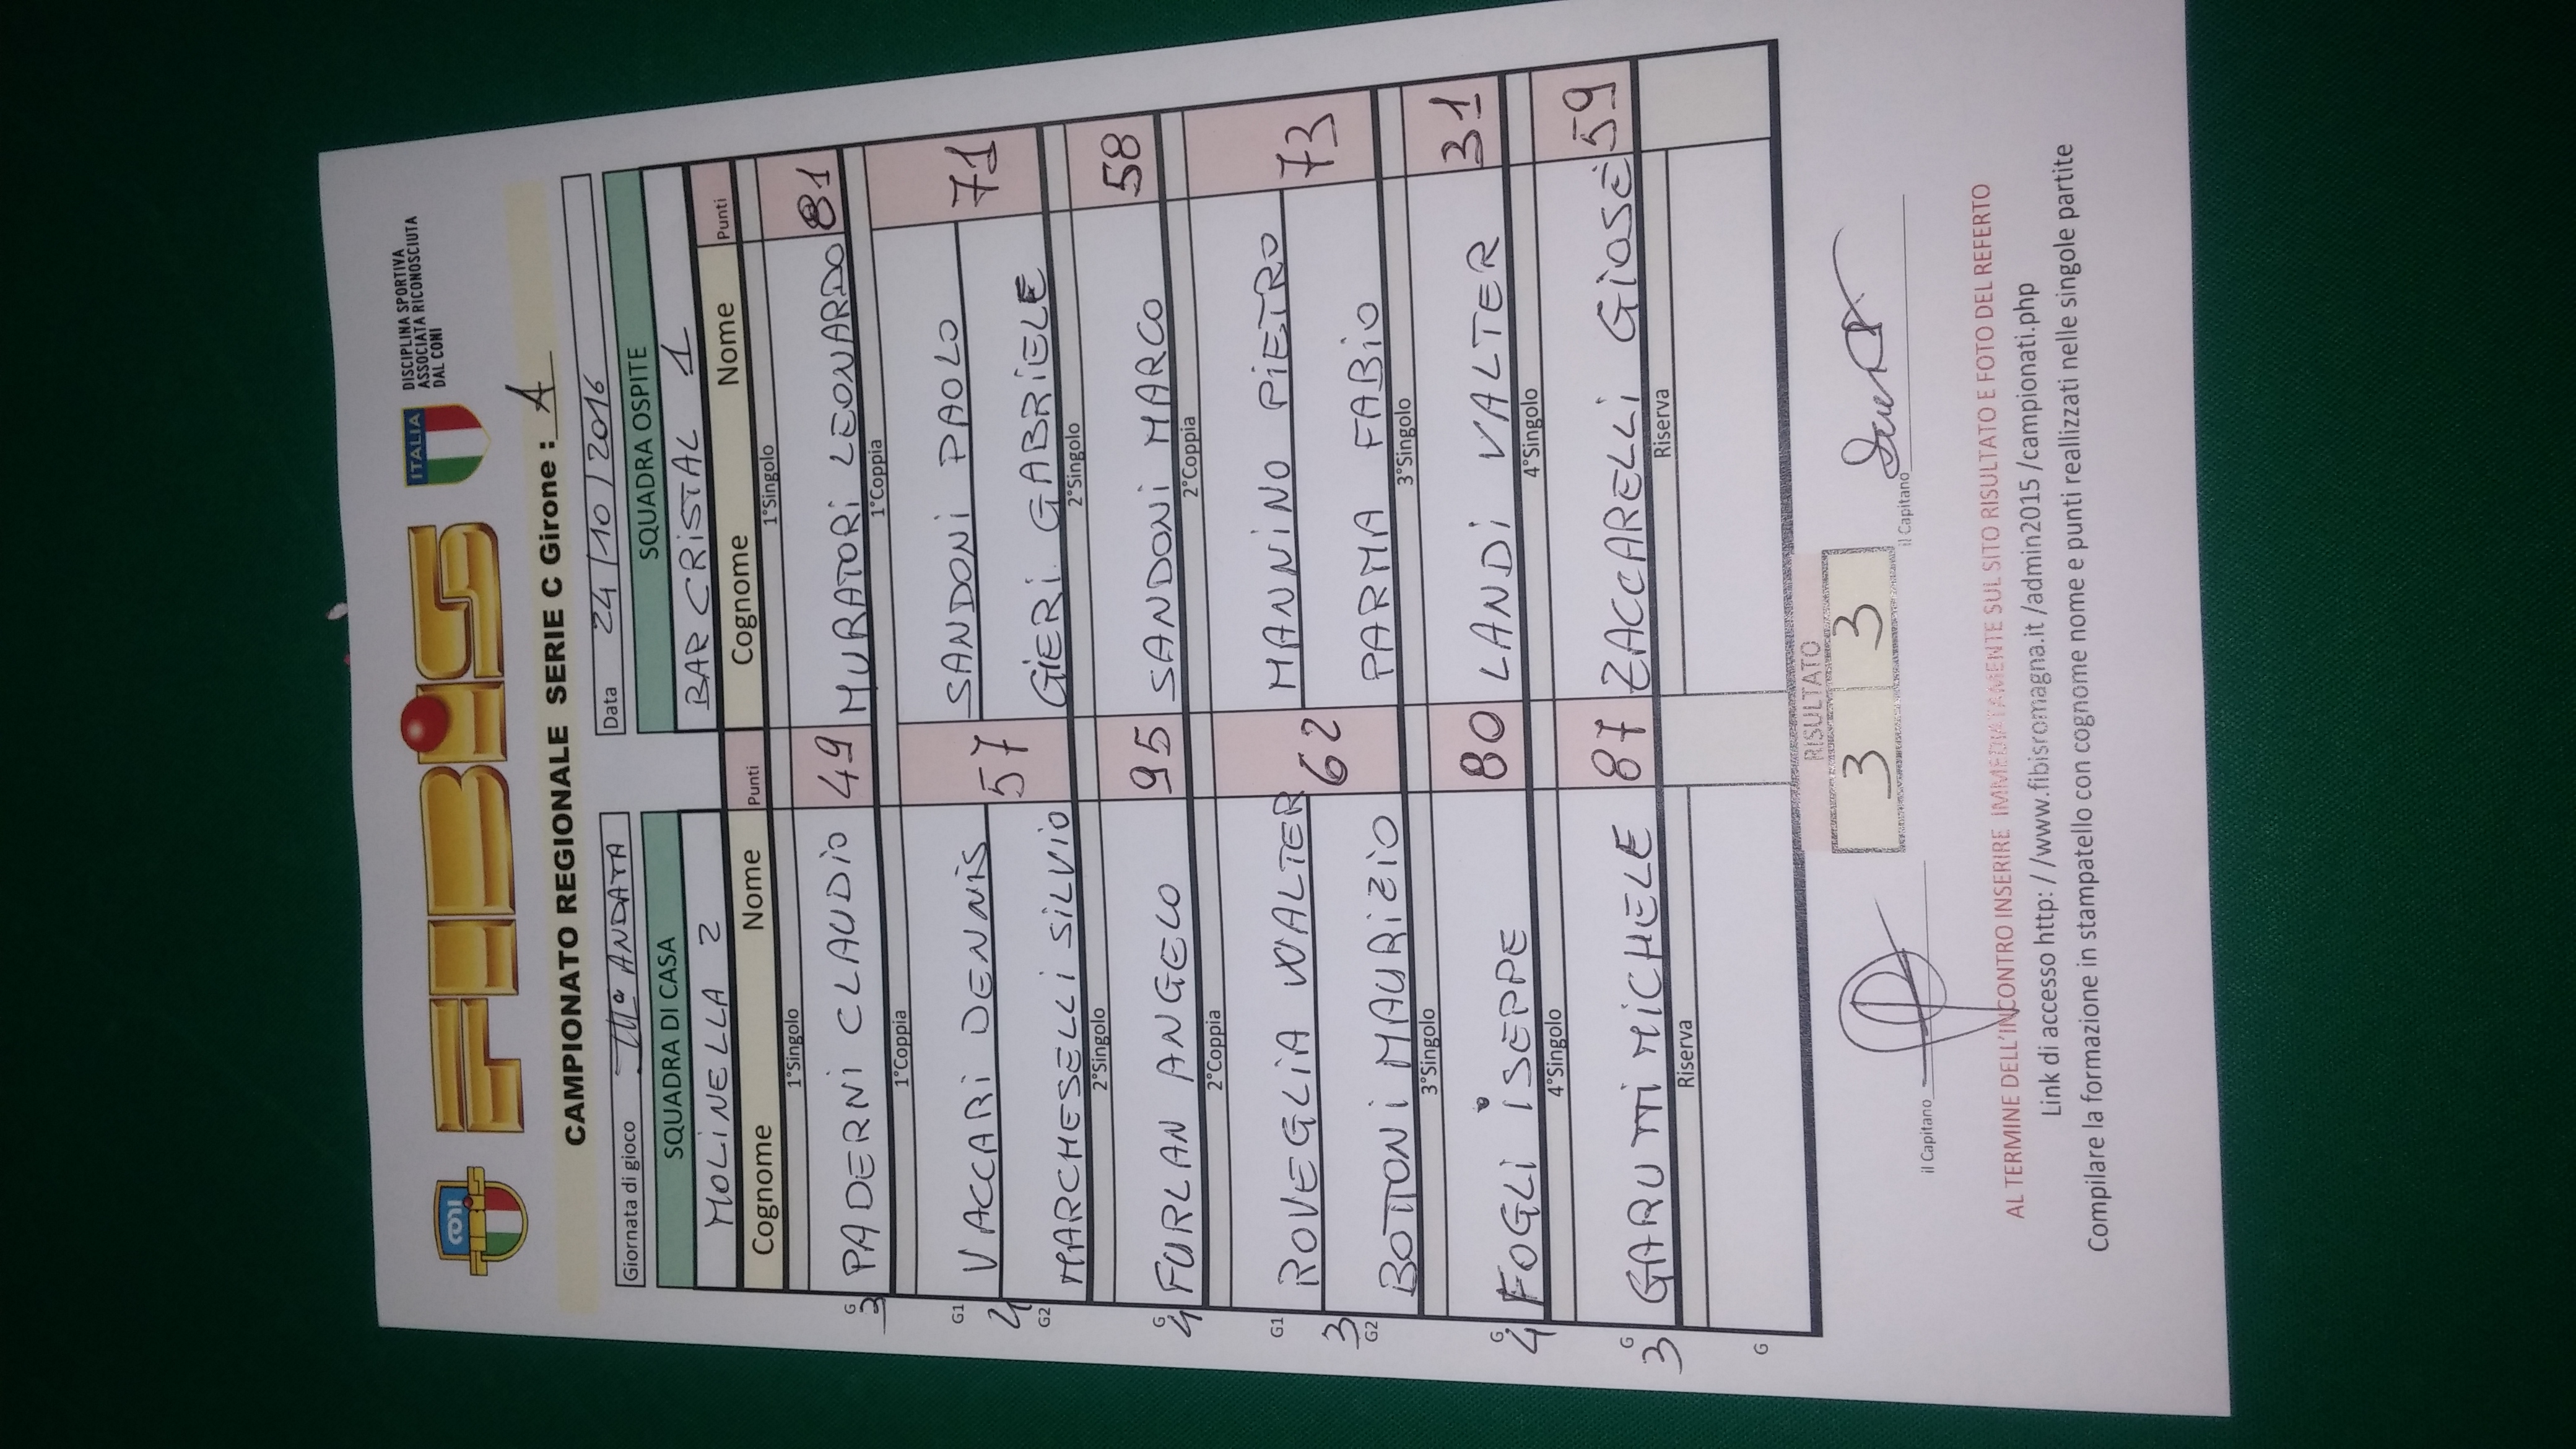 CONI
FIBiS
FIBiS
ITALIA
DISCIPLINA SPORTIVA
ASSOCIATA RICONOSCIUTA
DAL CONI
CAMPIONATO REGIONALE SERIE C Girone : A
Giornata di gioco IIIª ANDATA Data 24/10/2016
SQUADRA DI CASA SQUADRA OSPITE
MOLINELLA 2 BAR CRISTAL 1
Cognome Nome Punti Cognome Nome Punti
1°Singolo 1°Singolo
G 3 PADERNI CLAUDIO 49 MURATORI LEONARDO 81
1°Coppia 1°Coppia
G1 VACCARI DENNIS SANDONI PAOLO
4 57 71
G2 MARCHESELLI SILVIO GIERI GABRIELE
2°Singolo 2°Singolo
G 4 FURLAN ANGELO 95 SANDONI MARCO 58
2°Coppia 2°Coppia
G1 ROVEGLIA WALTER MANNINO PIETRO
3 62 73
G2 BOTTONI MAURIZIO PARMA FABIO
3°Singolo 3°Singolo
G 4 FOGLI ISEPPE 80 LANDI VALTER 31
4°Singolo 4°Singolo
G 3 GARUTTI MICHELE 87 ZACCARELLI GIOSÈ 59
Riserva Riserva
G
RISULTATO
3 3
il Capitano il Capitano
AL TERMINE DELL'INCONTRO INSERIRE IMMEDIATAMENTE SUL SITO RISULTATO E FOTO DEL REFERTO
Link di accesso http: / /www.fibisromagna.it /admin2015 /campionati.php
Compilare la formazione in stampatello con cognome nome e punti reallizzati nelle singole partite